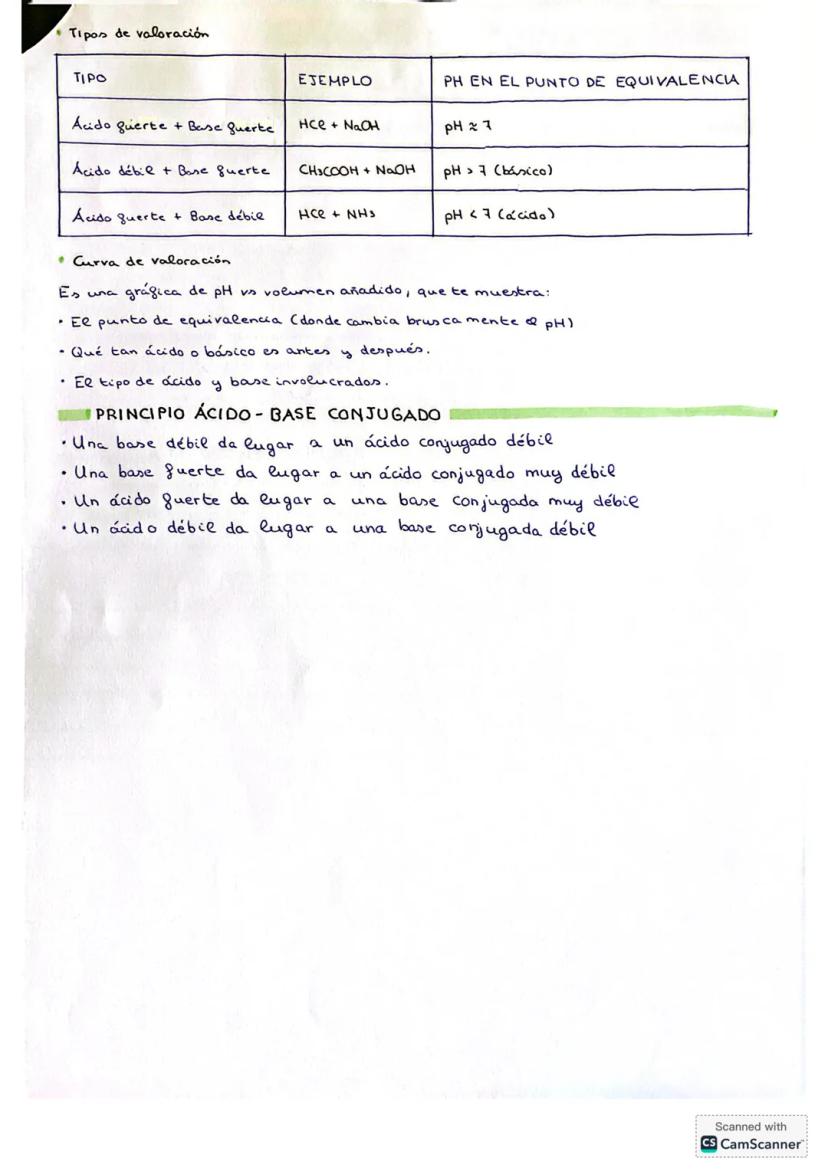 • Tipos de valoración
TIPO EJEMPLO PH EN EL PUNTO DE EQUIVALENCIA
Ácido fuerte + Base fuerte HCl + NaOH pH ≈ 7
Ácido débil + Base fuerte CH3COOH + NaOH pH > 7 (básico)
Ácido fuerte + Base débil HCl + NH3 pH < 7 (ácido)
• Curva de valoración
Es una gráfica de pH vs volumen añadido, que te muestra:
• El punto de equivalencia (donde cambia bruscamente el pH)
• Qué tan ácido o básico es antes y después.
• El tipo de ácido y base involucrados.
PRINCIPIO ÁCIDO - BASE CONJUGADO
• Una base débil da lugar a un ácido conjugado débil
• Una base fuerte da lugar a un ácido conjugado muy débil
• Un ácido fuerte da lugar a una base conjugada muy débil
• Un ácido débil da lugar a una base conjugada débil
Scanned with
CS CamScanner